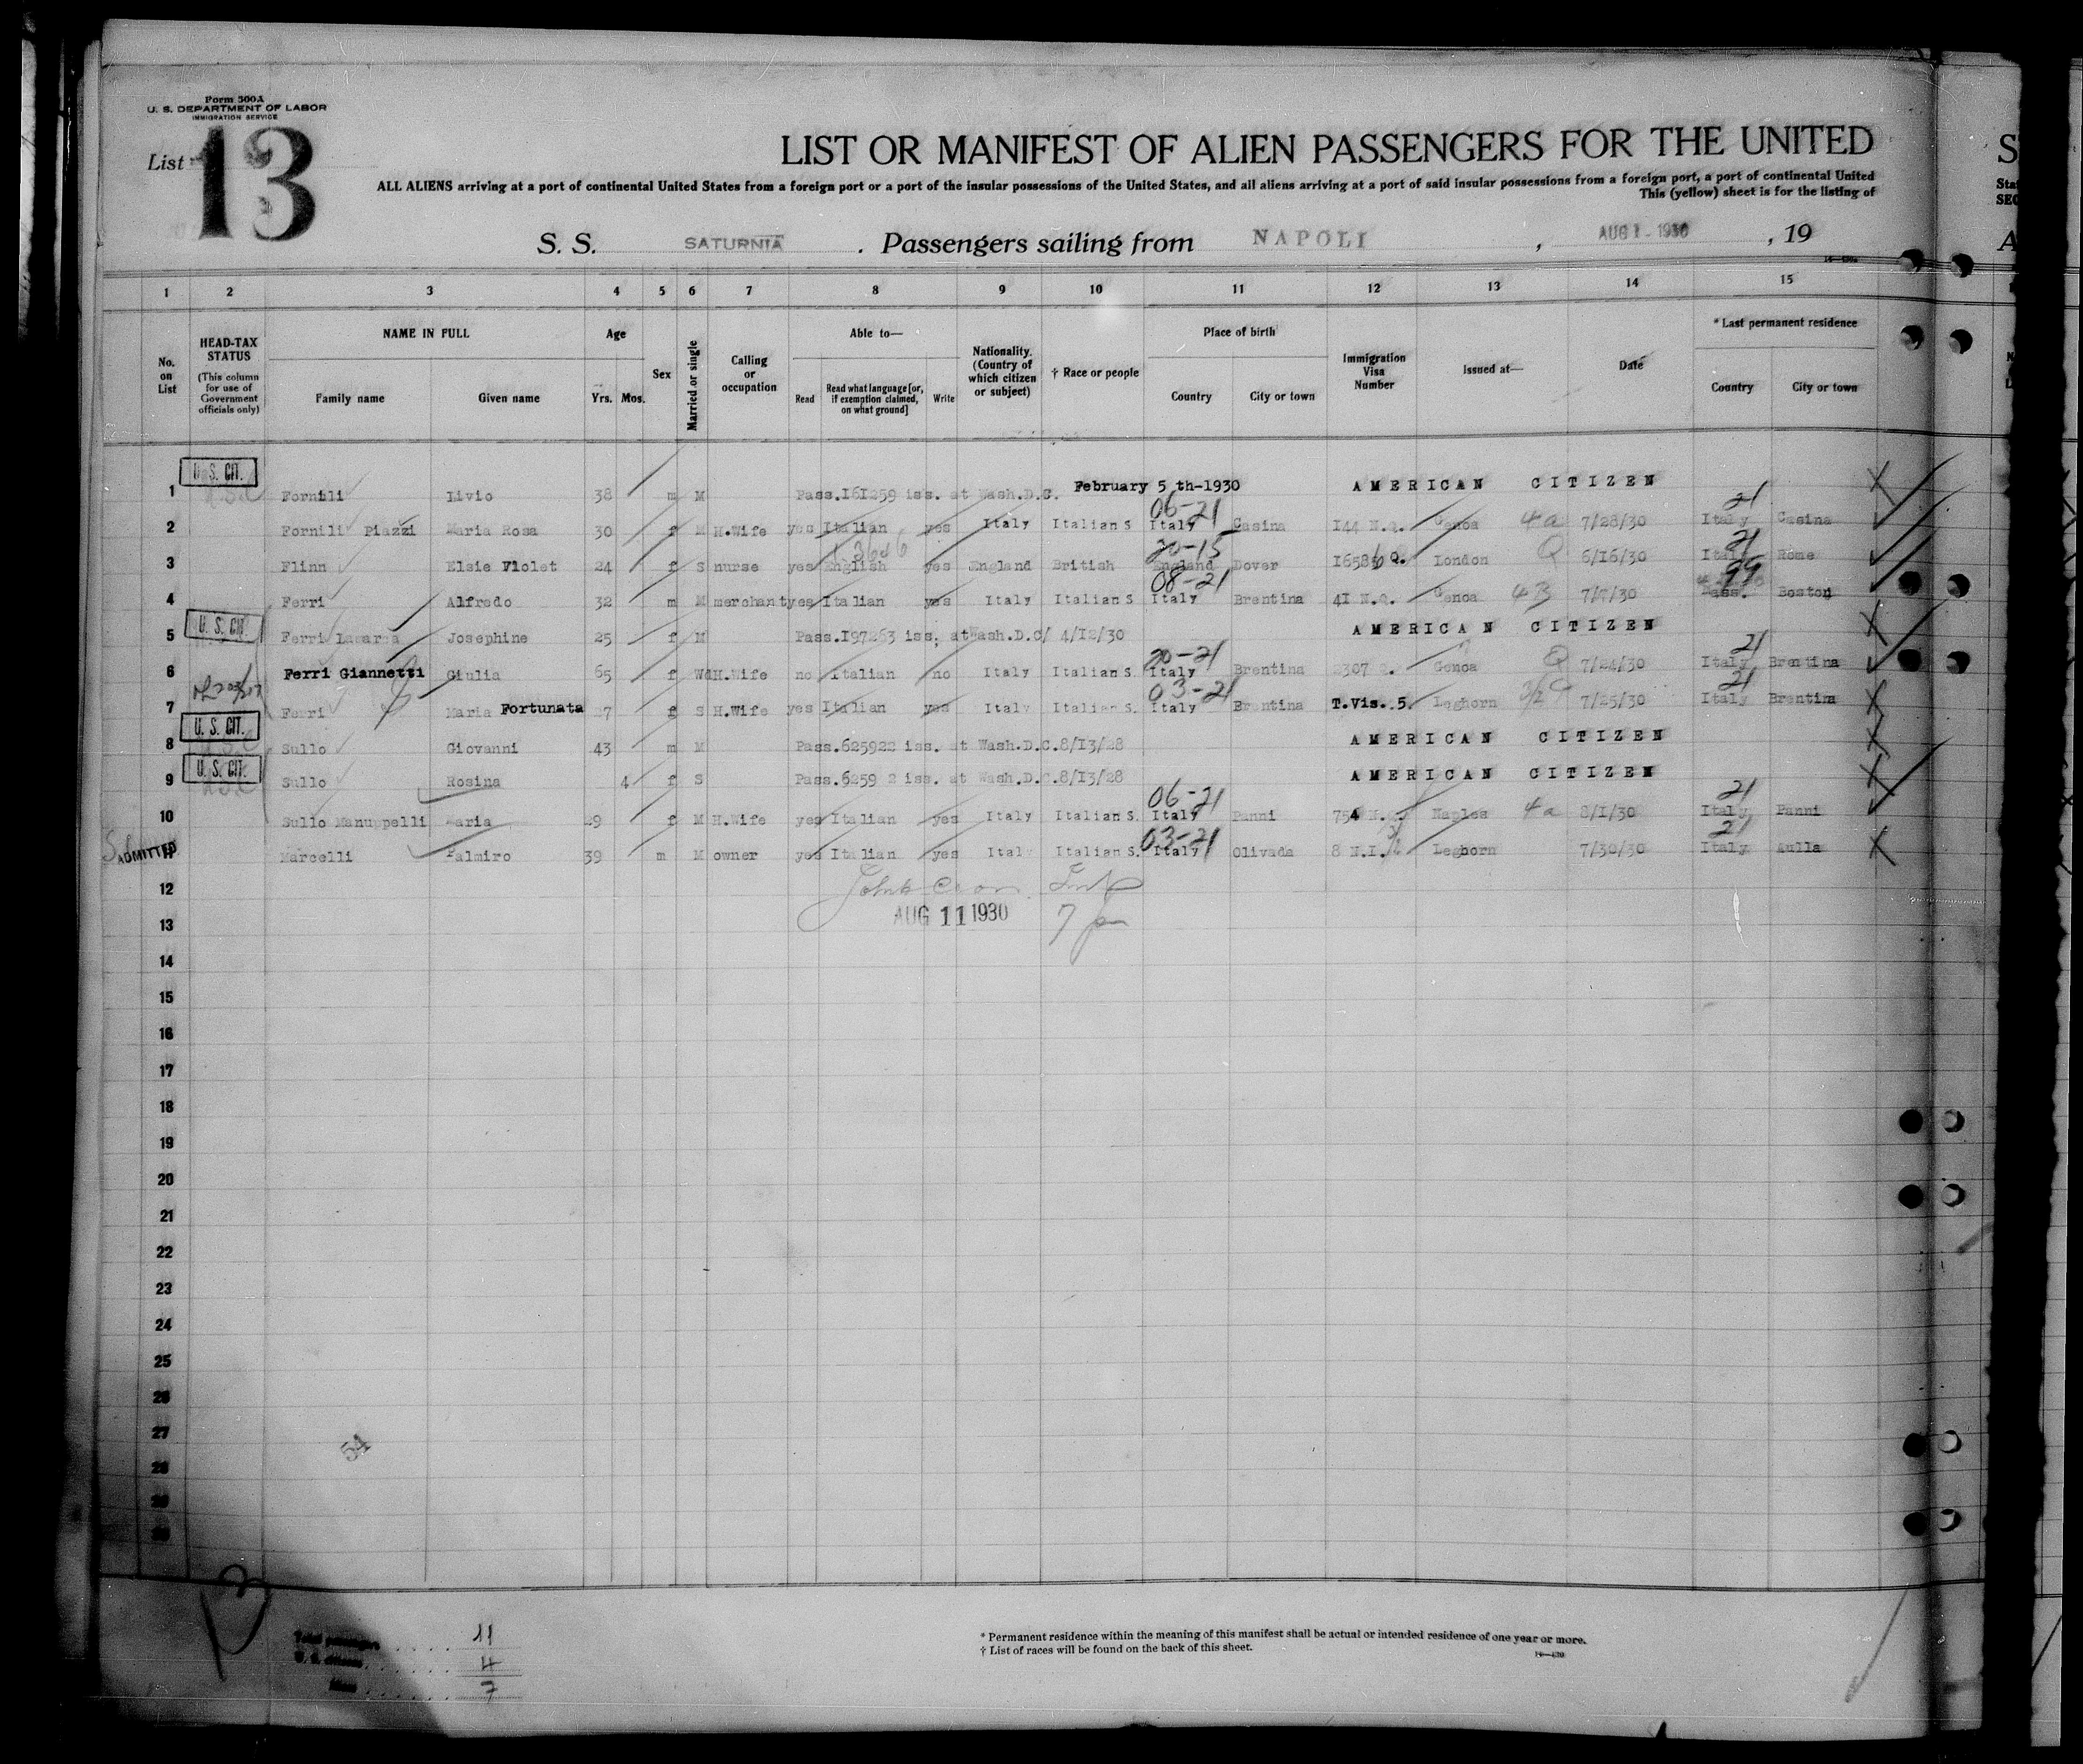 Form 500A
U. S. DEPARTMENT OF LABOR
IMMIGRATION SERVICE
List 13
LIST OR MANIFEST OF ALIEN PASSENGERS FOR THE UNITED
ALL ALIENS arriving at a port of continental United States from a foreign port or a port of the insular possessions of the United States, and all aliens arriving at a port of said insular possessions from a foreign port, a port of continental United
This (yellow) sheet is for the listing of
S. S. SATURNIA . Passengers sailing from NAPOLI , AUG 1 - 1930 , 19
1 2 3 4 5 6 7 8 9 10 11 12 13 14 15
No. on List
HEAD-TAX STATUS (This column for use of Government officials only)
NAME IN FULL Family name Given name
Age Yrs. Mos.
Sex
Married or single
Calling or occupation
Able to— Read Read what language [or, if exemption claimed, on what ground] Write
Nationality. (Country of which citizen or subject)
† Race or people
Place of birth Country City or town
Immigration Visa Number
Issued at—
Date
* Last permanent residence Country City or town
1 U. S. CIT. Fornili Livio 38 m M Pass.161259 iss. at Wash.D.C. February 5 th-1930 AMERICAN CITIZEN
2 Fornili Piazzi Maria Rosa 30 f M H.Wife yes Italian yes Italy Italian S 06-21 Italy Casina 144 N.Q. Genoa 4a 7/28/30 21 Italy Casina
3 Flinn Elsie Violet 24 f S nurse yes English yes England British 20-15 England Dover London Q 6/16/30 21 Italy Rome
4 Ferri Alfredo 32 m M merchant yes Italian yes Italy Italian S 08-21 Italy Brentina 41 N.Q. Genoa 4B 7/7/30 99 Mass. Boston
5 U. S. CIT. Ferri Josephine 25 f M Pass.197263 iss. at Wash.D.C/ 4/12/30 AMERICAN CITIZEN
6 Ferri Giannetti Giulia 65 f Wd H.Wife no Italian no Italy Italian S 20-21 Italy Brentina 2307 Q. Genoa Q 7/24/30 21 Italy Brentina
7 Ferri Maria Fortunata 27 f S H.Wife yes Italian yes Italy Italian S. 03-21 Italy Brentina T.Vis. 5. Leghorn 7/25/30 21 Italy Brentina
8 U. S. CIT. Sullo Giovanni 43 m M Pass.625922 iss. at Wash.D.C.8/13/28 AMERICAN CITIZEN
9 U. S. CIT. Sullo Rosina 4 f S Pass.6259 2 iss. at Wash.D.C.8/13/28 AMERICAN CITIZEN
10 Sullo Manuppelli Maria 29 f M H.Wife yes Italian yes Italy Italian S. 06-21 Italy Panni 754 Naples 4a 8/1/30 21 Italy Panni
ADMITTED Marcelli Palmiro 39 m M owner yes Italian yes Italy Italian S. 03-21 Italy Olivada 8 N.I. Leghorn 7/30/30 21 Italy Aulla
12
13 AUG 11 1930
14
15
16
17
18
19
20
21
22
23
24
25
26
27
28
54
Total passengers 11
U. S. citizens 4
Aliens 7
* Permanent residence within the meaning of this manifest shall be actual or intended residence of one year or more.
† List of races will be found on the back of this sheet.